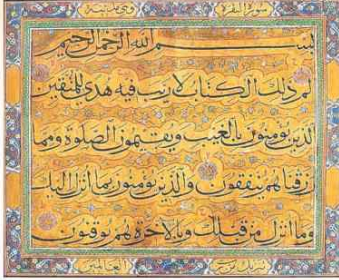 سورة البقرة وهي مدنية
بسم الله الرحمن الرحيم
الم ذلك الكتاب لا ريب فيه هدى للمتقين
الذين يؤمنون بالغيب ويقيمون الصلوة ومما
رزقناهم ينفقون والذين يؤمنون بما أنزل اليك
وما أنزل من قبلك وبالآخرة هم يوقنون
العالمين